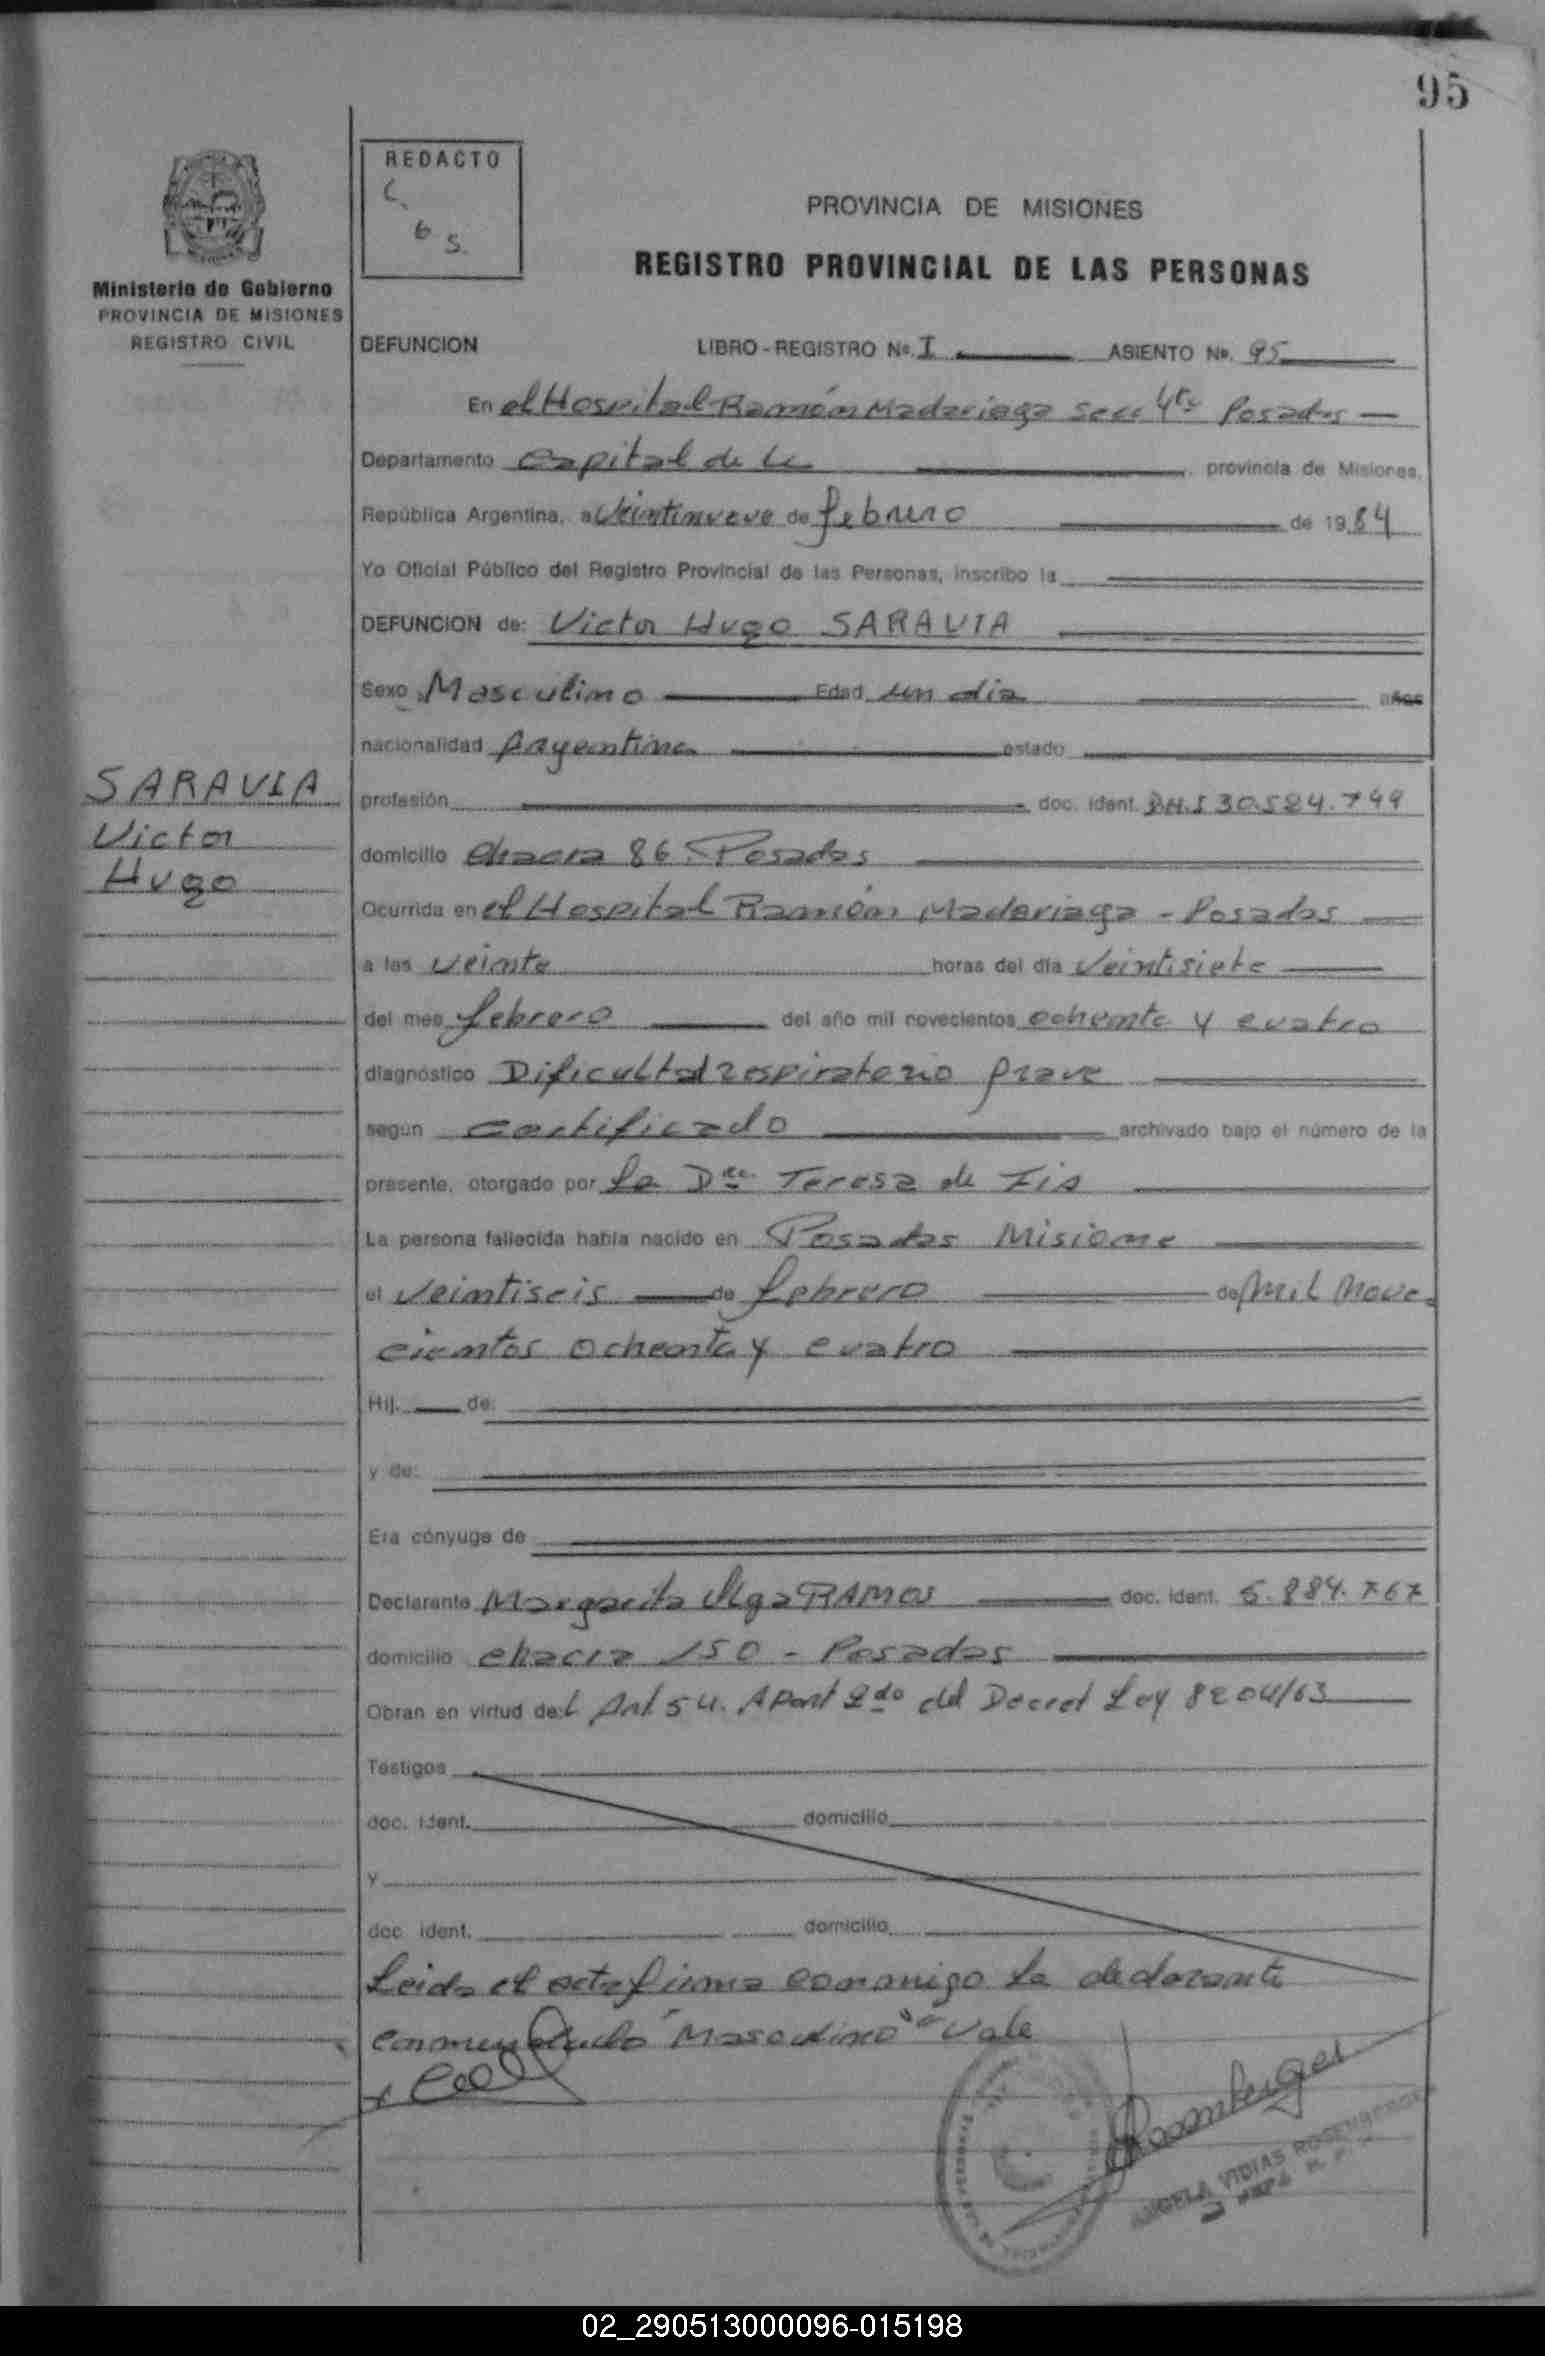 95
REDACTO
C.
G S.
PROVINCIA DE MISIONES
REGISTRO PROVINCIAL DE LAS PERSONAS
Ministerio de Gobierno
PROVINCIA DE MISIONES
REGISTRO CIVIL
DEFUNCION LIBRO-REGISTRO Nº. I ASIENTO Nº. 95
En el Hospital Ramón Madariaga Secc 4ta Posadas
Departamento Capital de la provincia de Misiones,
República Argentina, a Veintinueve de febrero de 1984
Yo Oficial Público del Registro Provincial de las Personas, inscribo la
DEFUNCION de: Victor Hugo SARAVIA
Sexo Masculino Edad un dia años
nacionalidad Argentina estado
SARAVIA
Victor
Hugo
profesión doc. ident. 30.524.799
domicilio chacra 86 Posadas
Ocurrida en el Hospital Ramón Madariaga - Posadas
a las veinte horas del día Veintisiete
del mes febrero del año mil novecientos ochenta y cuatro
diagnóstico Dificultad respiratorio grave
según certificado archivado bajo el número de la
presente, otorgado por la Dra. Teresa de
La persona fallecida había nacido en Posadas Misione
el Veintiseis de febrero de Mil Nove-
cientos ochenta y cuatro
Hij. de:
y de:
Era cónyuge de
Declarante Margarita Olga RAMOS doc. ident. 5.884.767
domicilio chacra 150 - Posadas
Obran en virtud del Art 54. Apart 2do del Decret Ley 8204/63
Testigos
doc. ident. domicilio
y
doc. ident. domicilio
Leida el acta firma conmigo la declarante
enmendado "Masculino" Vale
Rosenberger
ANGELA VIDIAS ROSENBERGER
02_290513000096-015198